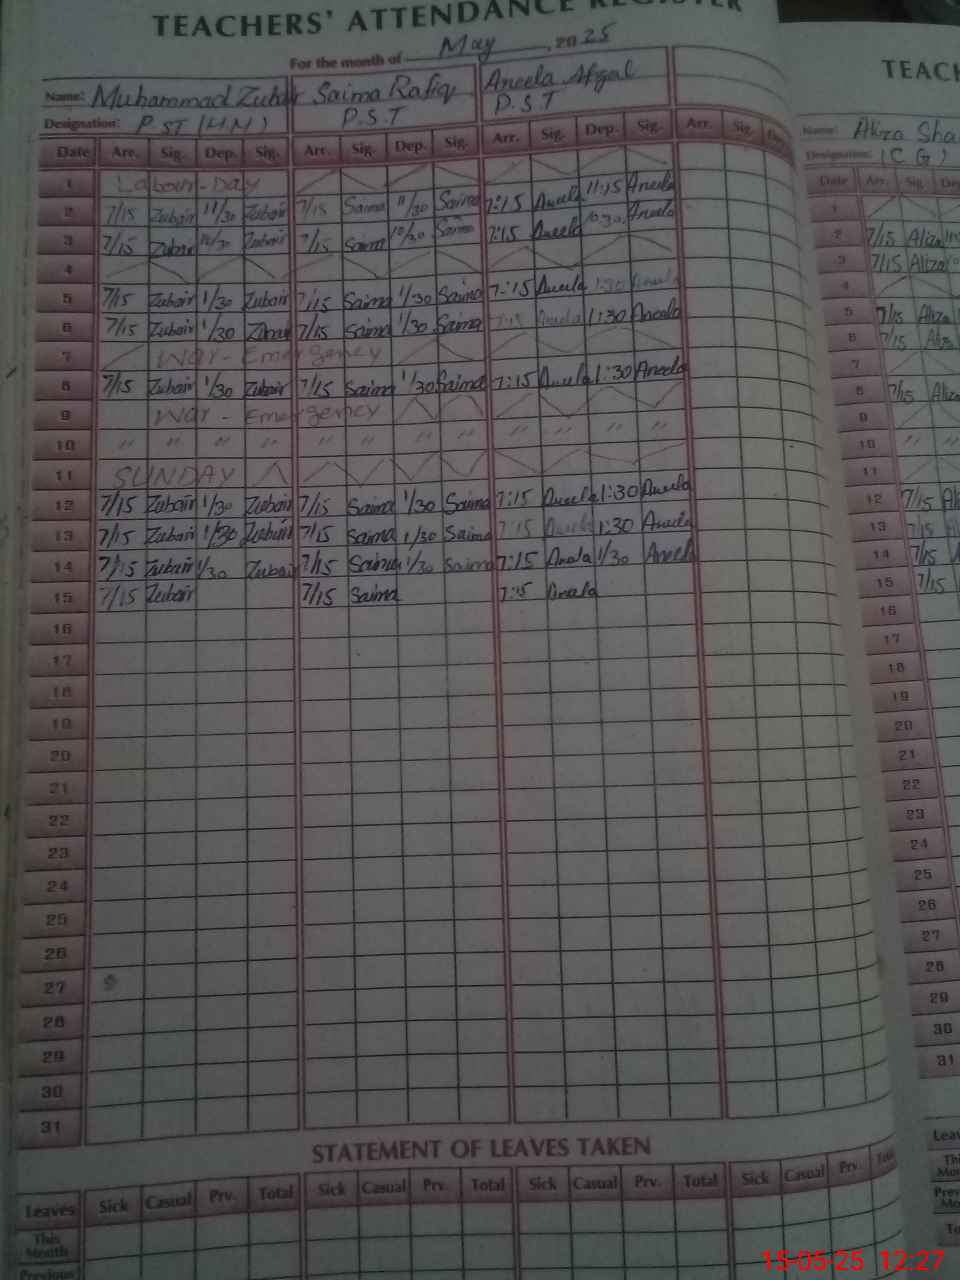 TEACHERS' ATTENDANCE REGISTER
For the month of May, 2025
Name: Muhammad Zubair Saima Rafiq Aneela Afzal
Designation: P ST (H.M) P.S.T P.S.T
Date Arr. Sig. Dep. Sig. Arr. Sig. Dep. Sig. Arr. Sig. Dep. Sig. Arr. Sig. Dep.
1 Labour-Day
2 7/15 Zubair 11/30 Zubair 7/15 Saima 11/30 Saima 7:15 Aneela 11:15 Aneela
3 7/15 Zubair 10/30 Zubair 7/15 Saima 10/30 Saima 7:15 Aneela 10:30 Aneela
4
5 7/15 Zubair 1/30 Zubair 7/15 Saima 1/30 Saima 7:15 Aneela 1:30 Aneela
6 7/15 Zubair 1/30 Zubair 7/15 Saima 1/30 Saima 7:15 Aneela 1:30 Aneela
7 War - Emergency
8 7/15 Zubair 1/30 Zubair 7/15 Saima 1/30 Saima 7:15 Aneela 1:30 Aneela
9 War - Emergency
10 " " " " " " " " " " " "
11 SUNDAY
12 7/15 Zubair 1/30 Zubair 7/15 Saima 1/30 Saima 7:15 Aneela 1:30 Aneela
13 7/15 Zubair 1/30 Zubair 7/15 Saima 1/30 Saima 7:15 Aneela 1:30 Aneela
14 7/15 Zubair 1/30 Zubair 7/15 Saima 1/30 Saima 7:15 Aneela 1/30 Aneela
15 7/15 Zubair 7/15 Saima 7:15 Aneela
16
17
18
19
20
21
22
23
24
25
26
27
28
29
30
31
STATEMENT OF LEAVES TAKEN
Leaves Sick Casual Prv. Total Sick Casual Prv. Total Sick Casual Prv. Total Sick Casual Prv. Total
This Month
Previous
TEACH
Name: Aliza Sha
Designation: (C G)
Date Arr. Sig. Dep
1
2 7/15 Aliza
3 7/15 Aliza
4
5 7/15 Aliza
6 7/15 Aliz
7
8 7/15 Aliza
9
10 " "
11
12 7/15 Ali
13 7/15
14 7/15
15 7/15
16
17
18
19
20
21
22
23
24
25
26
27
28
29
30
31
Leav
Thi
Mon
Prev
Mo
To
15-05-25 12:27